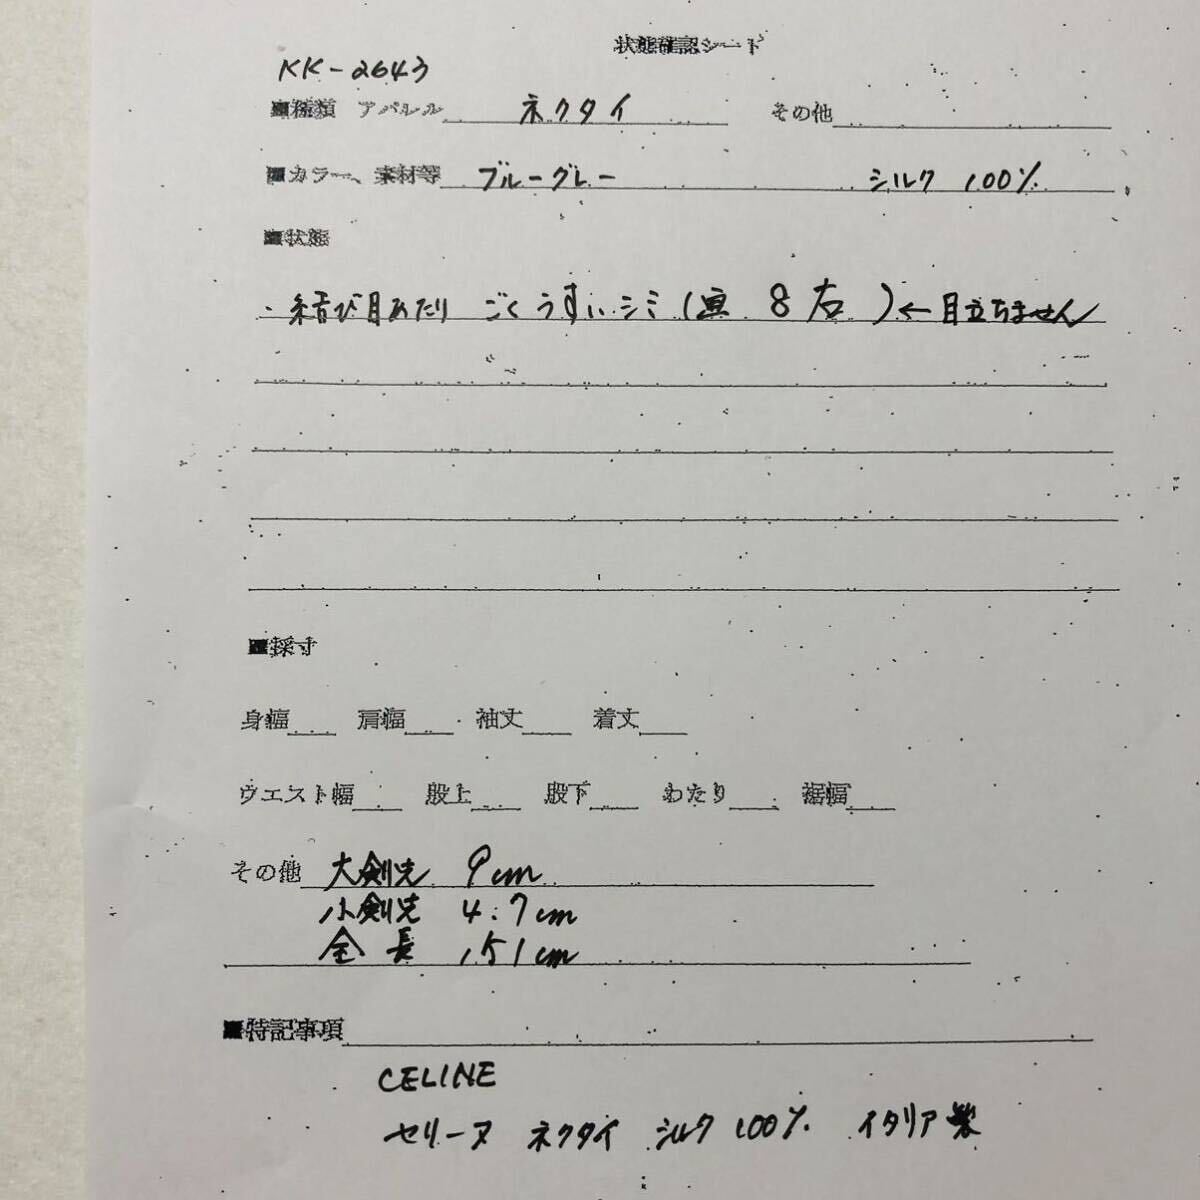 状態確認シート
KK-2643
■種類 アパレル ネクタイ その他
■カラー、素材等 ブルーグレー シルク 100%
■状態
・結び目あたり ごくうすいシミ(画 8 右 )←目立ちません
■採寸
身幅 肩幅 袖丈 着丈
ウエスト幅 股上 股下 わたり 裾幅
その他 大剣先 9cm
小剣先 4.7cm
全長 151cm
■特記事項
CELINE
セリーヌ ネクタイ シルク 100% イタリア製